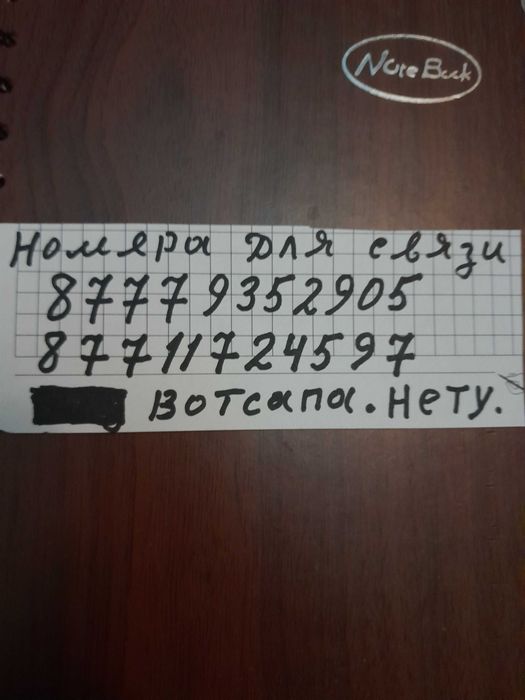 NoteBook
Номера для связи
87779352905
87711724597
Вотсапа. Нету.